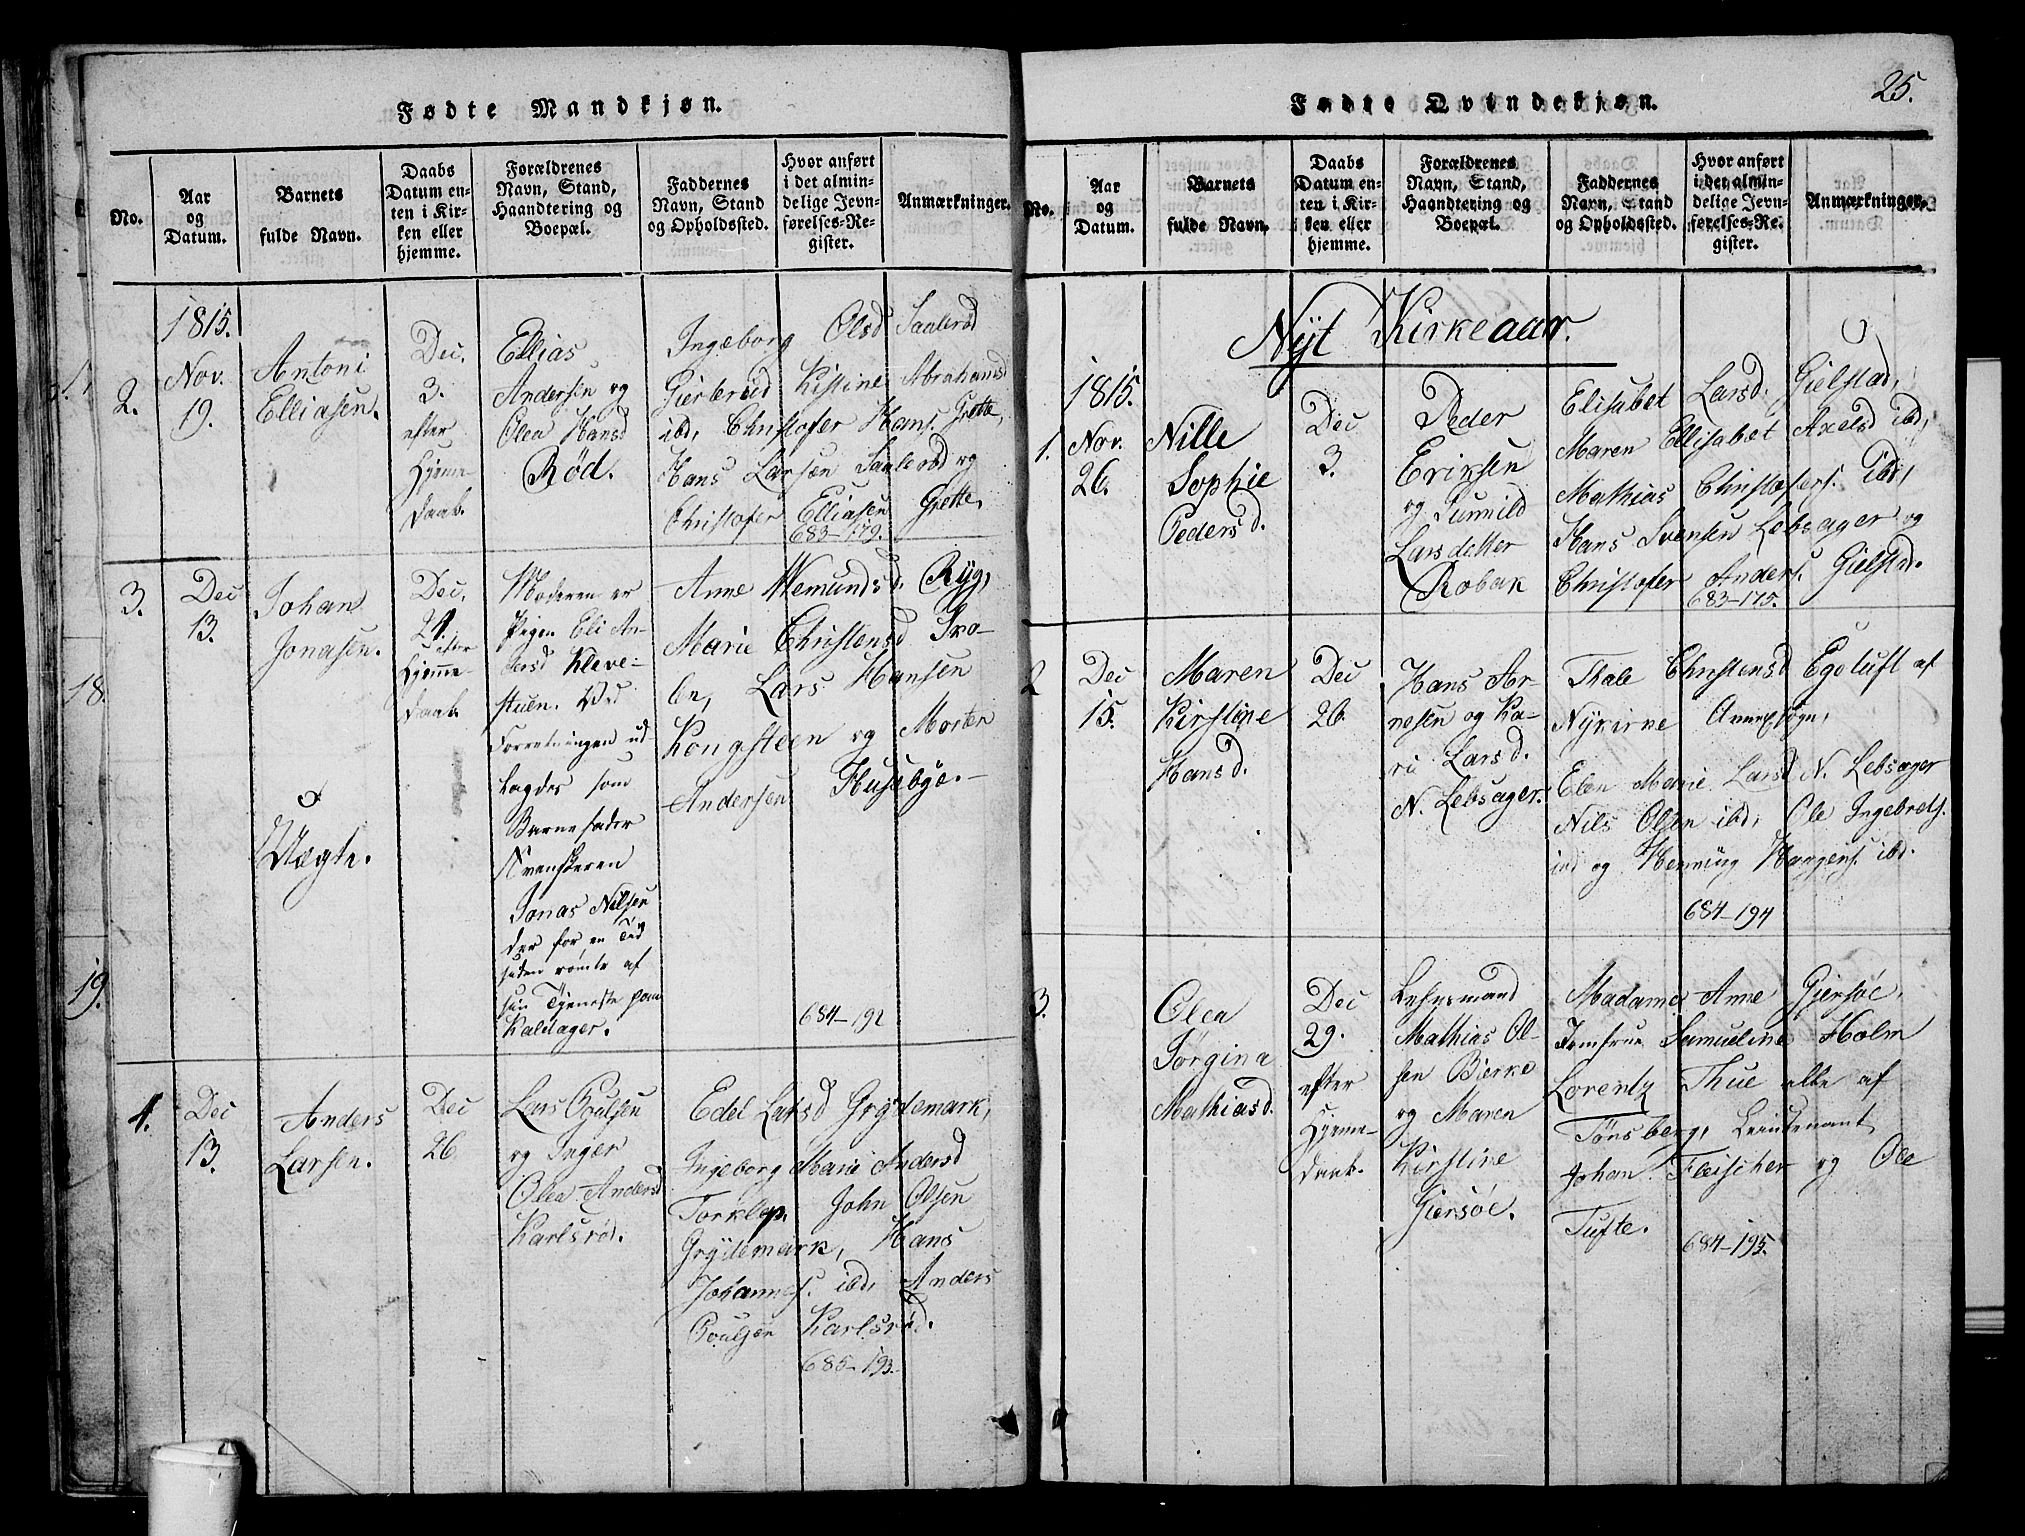 Fødte Mandkjøn.
No.
Aar
og
Datum.
Barnets
fulde Navn.
Daabs
Datum en-
ten i Kir-
ken eller
hjemme.
Forældrenes
Navn, Stand,
Haandtering og
Boepæl.
Faddernes
Navn, Stand
og Opholdssted.
Hvor anført
i det almin-
delige Jevn-
førelses-Re-
gister.
Anmærkninger.
2.
1815.
Nov.
19.
Antoni
Elliasen.
Dec.
3.
efter
Hjemme
Daab.
Ellias
Andersen og
Olea Hansd
Rød.
Ingeborg Olsd Saalerød
Gierterød Kistine Abrahamsd
ibd, Christofer Hans. Grette,
Hans Larsen Saalerød og
Christofer Elliasen Grette.
683-179.
3.
Dec
13.
Johan
Jonasen.
Uægte.
Dec.
24.
efter
Hjemme
Daab.
Moderen er
Pigen Eli An-
dersd Kleve-
stuen. Ved
Forretningen ud
lagdes som
Barnefader
Svenskeren
Jonas Nilsen
der for en Tid
siden rømte af
sin Tjeneste paa
Kaldager.
Anne Wemundsd. Ryg,
Marie Christensd Sko-
len, Lars Hansen
Kongsteen og Morten
Andersen Husebye.
684-192
4.
Dec
13.
Anders
Larsen.
Dec
26
Lars Poulsen
og Inger
Olea Andersd
Karlsrød.
Edel Larsd Grydemark,
Ingeborg Marie Andersd
Torklep. John Olsen
Grydemark, Hans
Johannes. ibd, Anders
Poulsen Karlsrød.
685-193.
18.
19.
25.
Fødte Qvindekjøn.
No.
Aar
og
Datum.
Barnets
fulde Navn.
Daabs
Datum en-
ten i Kir-
ken eller
hjemme.
Forældrenes
Navn, Stand,
Haandtering og
Boepæl.
Faddernes
Navn, Stand
og Opholdssted.
Hvor anført
i det almin-
delige Jevn-
førelses-Re-
gister.
Anmærkninger.
Nyt Kirkeaar.
1.
1815.
Nov.
26.
Nille
Sophie
Pedersd.
Dec
3.
Peder
Eriksen
og Gunnild
Larsdatter
Robak
Elisabet Larsd. Gielstad,
Maren Ellisabet Axelsd ibd,
Mathias Christofers. ibd,
Hans Svensen Lebsager og
Christofer Anders. Gielstad.
683-175.
2
Dec
15.
Maren
Kirstine
Hansd.
Dec
26.
Hans Ar-
nesen og Ka-
ri Larsd.
N. Lebsager.
Thale Christensd Egeluft af
Nykirke Annexsogn,
Elen Marie Larsd N. Lebsager
Nils Olsen ibd, Ole Ingebrets.
ibd og Henning Hansens. ibd.
684-194
3.
Olea
Jørgina
Mathiasd.
Dec
29.
efter
Hjemme-
daab.
Lehnsmand
Mathias Ol-
sen Bierke
og Maren
Kirstine
Giersøe.
Madame Anne Gjersøe,
Jomfrue Samueline Holm
Lorentz Thue alle af
Tønsberg, Leiutenant
Johan Fleischer og Ole
Tufte.
684-195.